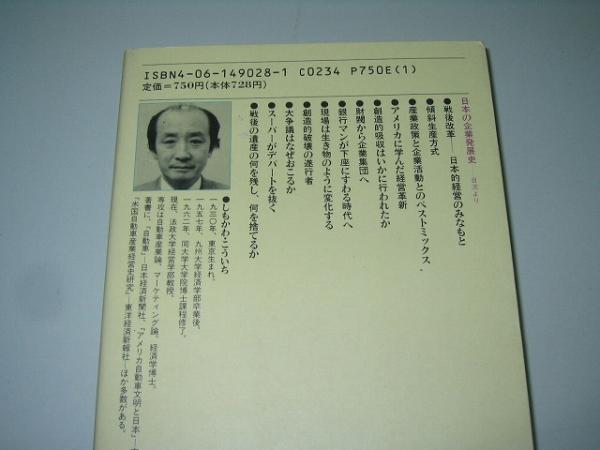 ISBN4-06-149028-1 C0234 P750E(1)
定価=750円(本体728円)
日本の企業発展史——目次より
●戦後改革——日本的経営のみなもと
●傾斜生産方式
●産業政策と企業活動とのベストミックス
●アメリカに学んだ経営革新
●創造的吸収はいかに行われたか
●財閥から企業集団へ
●銀行マンが下座にすわる時代へ
●現場は生き物のように変化する
●創造的破壊の遂行者
●大争議はなぜおこるか
●スーパーがデパートを抜く
●戦後の遺産の何を残し、何を捨てるか
●しもかわ・こういち
一九三〇年、東京生まれ。
一九五七年、九州大学経済学部卒業後、
一九六二年、同大学大学院博士課程修了。
現在、法政大学経営学部教授。
専攻は自動車産業論、マーケティング論。経済学博士。
著書に、『自動車』—日本経済新聞社、『アメリカ自動車文明と日本』—
『米国自動車産業経営史研究』—東洋経済新報社—ほか多数がある。